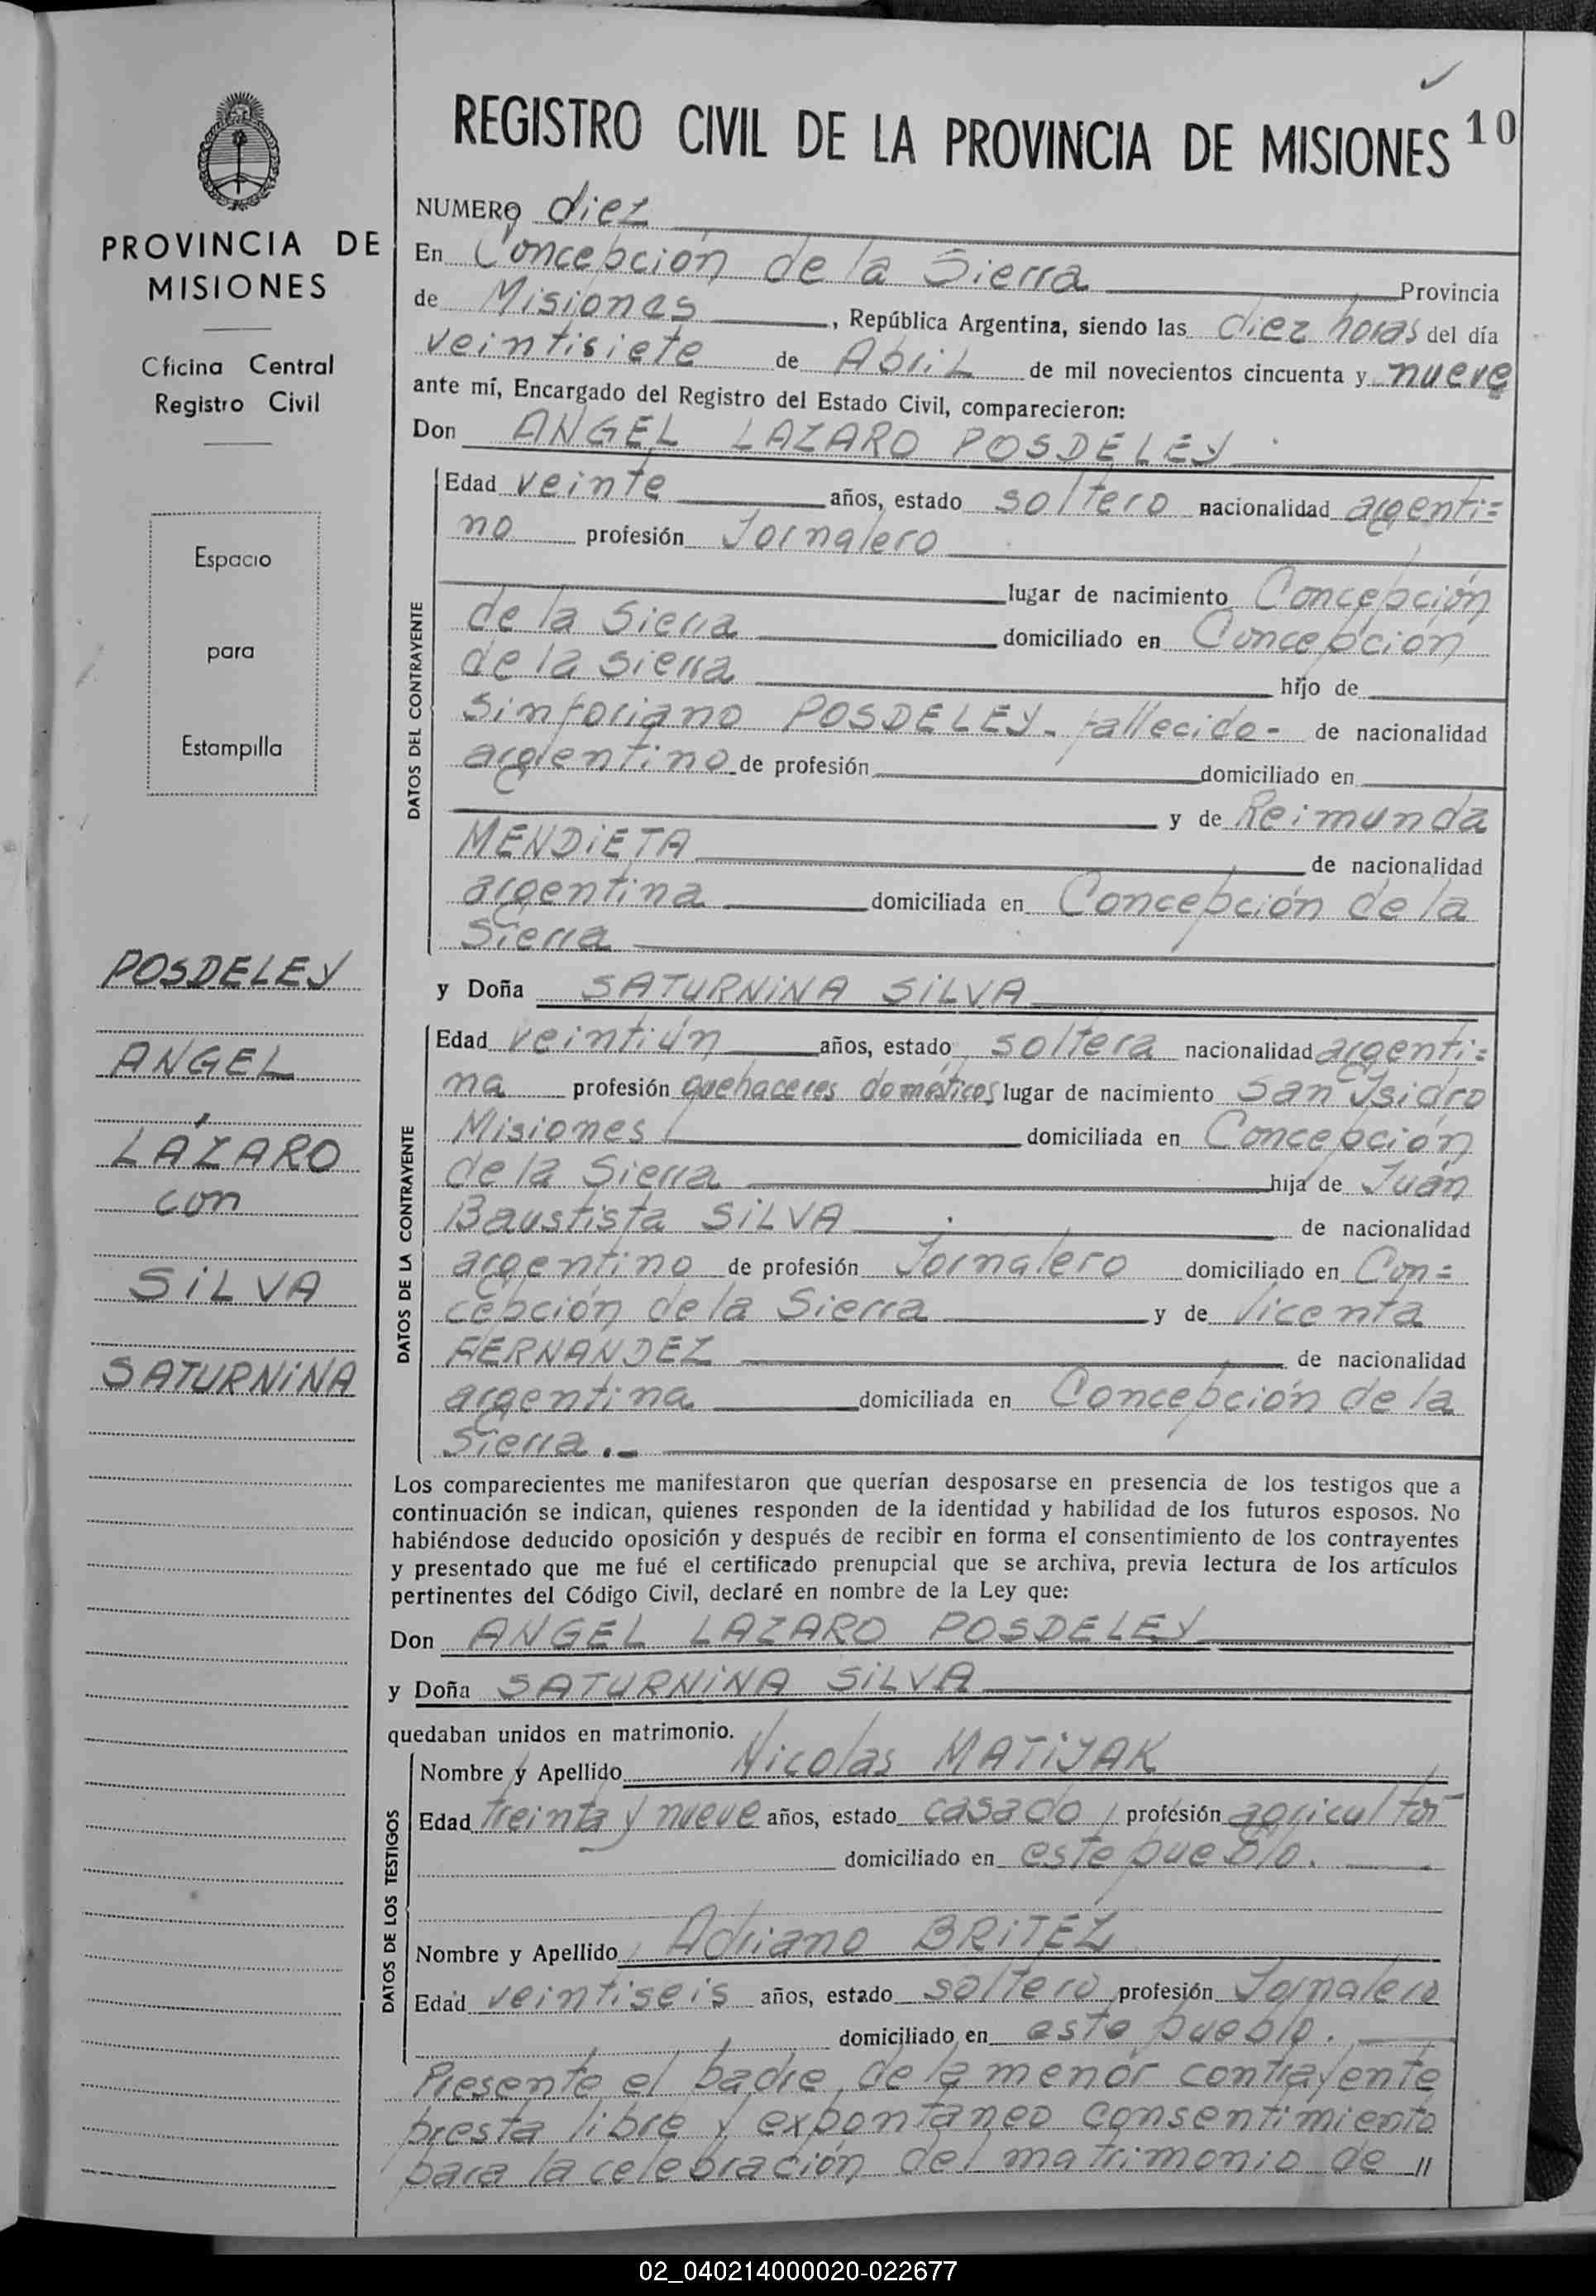 REGISTRO CIVIL DE LA PROVINCIA DE MISIONES 10
PROVINCIA DE
MISIONES
Oficina Central
Registro Civil
Espacio
para
Estampilla
POSDELEY
ANGEL
LÁZARO
con
SILVA
SATURNINA
NUMERO diez
En Concepción de la Sierra Provincia
de Misiones, República Argentina, siendo las diez horas del día
veintisiete de Abril de mil novecientos cincuenta y nueve
ante mí, Encargado del Registro del Estado Civil, comparecieron:
Don ANGEL LAZARO POSDELEY
DATOS DEL CONTRAYENTE
Edad veinte años, estado soltero nacionalidad argenti=
no profesión Jornalero
lugar de nacimiento Concepción
de la Sierra domiciliado en Concepción
de la sierra hijo de
Sinforiano POSDELEY - fallecido - de nacionalidad
argentino de profesión domiciliado en
y de Reimunda
MENDIETA de nacionalidad
argentina domiciliada en Concepción de la
Sierra
y Doña SATURNINA SILVA
DATOS DE LA CONTRAYENTE
Edad veintiún años, estado soltera nacionalidad argenti=
na profesión quehaceres domésticos lugar de nacimiento San Isidro
Misiones domiciliada en Concepción
de la Sierra hija de Juan
Baustista SILVA de nacionalidad
argentino de profesión Jornalero domiciliado en Con=
cepción de la Sierra y de Vicenta
FERNANDEZ de nacionalidad
argentina domiciliada en Concepción de la
Sierra .-
Los comparecientes me manifestaron que querían desposarse en presencia de los testigos que a
continuación se indican, quienes responden de la identidad y habilidad de los futuros esposos. No
habiéndose deducido oposición y después de recibir en forma el consentimiento de los contrayentes
y presentado que me fué el certificado prenupcial que se archiva, previa lectura de los artículos
pertinentes del Código Civil, declaré en nombre de la Ley que:
Don ANGEL LAZARO POSDELEY
y Doña SATURNINA SILVA
quedaban unidos en matrimonio.
DATOS DE LOS TESTIGOS
Nombre y Apellido Nicolas MATIJAK
Edad treinta y nueve años, estado casado, profesión agricultor
domiciliado en este pueblo.
Nombre y Apellido Adriano BRITEZ
Edad veintiseis años, estado soltero profesión Jornalero
domiciliado en este pueblo.
Presente el padre de la menor contrayente
presta libre y expontaneo consentimiento
para la celebración del matrimonio de "
02_040214000020-022677